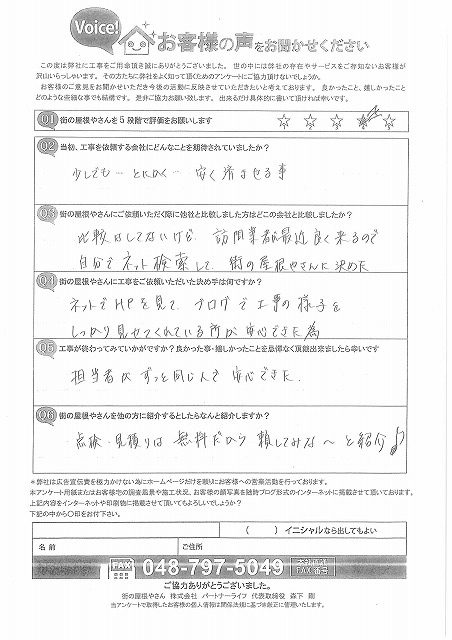 Voice!
お客様の声をお聞かせください
この度は弊社に工事をご用命頂き誠にありがとうございました。世の中には弊社の存在やサービスをご存知ないお客様が
沢山いらっしゃいます。その方たちに弊社をよく知って頂くためのアンケートにご協力頂けないでしょうか。
お客様のご意見をお聞かせいただき今後の活動に反映させていただきたいと考えております。良かったこと、嬉しかったこと
どのような些細な事でも結構です。是非ご協力お願い致します。出来るだけ具体的に書いて頂ければ幸いです。
Q1 街の屋根やさんを5段階で評価をお願いします ☆ ☆ ☆ ☆ ☆
Q2 当初、工事を依頼する会社にどんなことを期待されていましたか?
少しでも…とにかく…安く済させる事
Q3 街の屋根やさんにご依頼いただく際に他社と比較しました方はどこの会社と比較しましたか?
比較はしてないけど、訪問業者が最近良く来るので
自分でネット検索して、街の屋根やさんに決めた
Q4 街の屋根やさんに工事をご依頼いただいた決め手は何ですか?
ネットでHPを見て、ブログで工事の様子を
しっかり見せてくれている所が安心できた為
Q5 工事が終わってみていかがですか?良かった事・嬉しかったことを忌憚なく頂戴出来ましたら幸いです
担当者がずっと同じ人で安心できた.
Q6 街の屋根やさんを他の方に紹介するとしたらなんと紹介しますか?
点検・見積りは無料だから頼してみな〜と紹介♪
*弊社は広告宣伝費を極力かけない為にホームページだけを頼りにお客様への営業活動を行っております。
本アンケート用紙またはお客様宅の調査風景や施工状況、お客様の顔写真を随時ブログ形式のインターネットに掲載させて頂いております。
上記内容をインターネットや印刷物に掲載させて頂いてもよろしいでしょうか?
下記の中から〇印をお付下さい。
( ) イニシャルなら出してもよい
名前 ご住所
FAX 048-797-5049
ご協力ありがとうございました。
街の屋根やさん 株式会社 パートナーライフ 代表取締役 森下 剛
当アンケートで取得したお客様の個人情報は関係法規に基づき厳正に管理いたします。